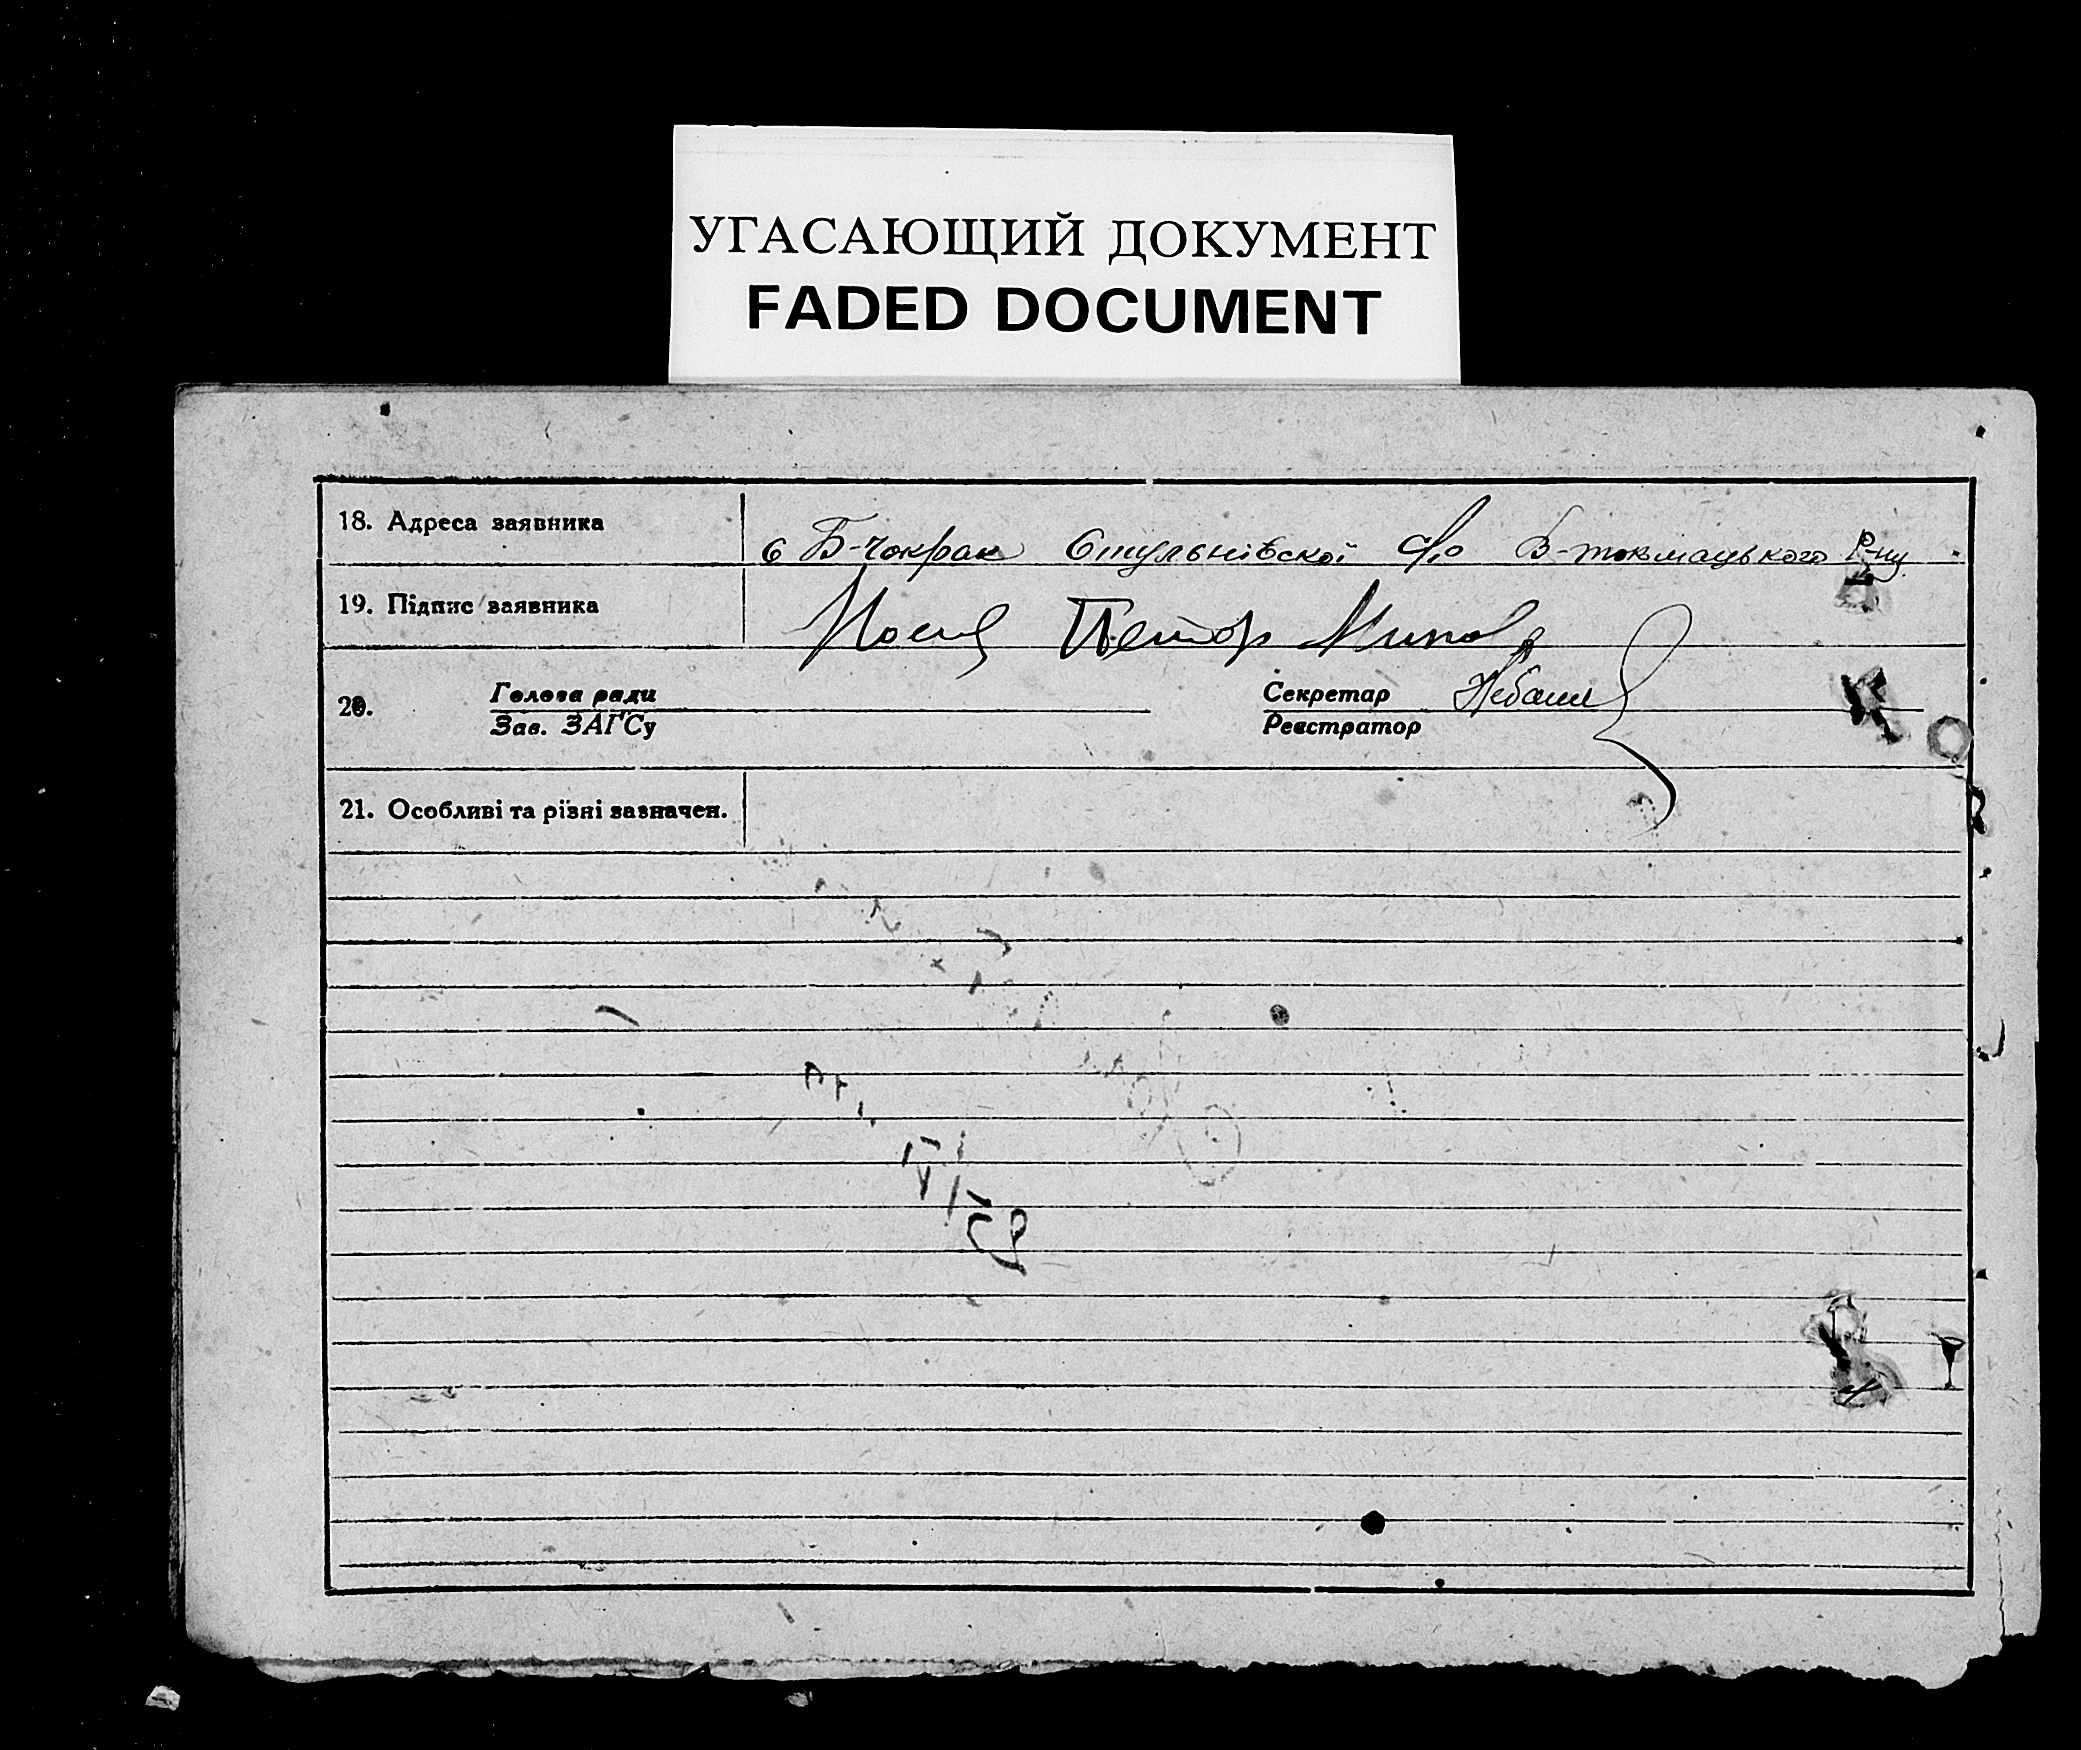 УГАСАЮЩИЙ ДОКУМЕНТ
FADED DOCUMENT
18. Адреса заявника
с Б-Чокрак Стульнівської с/р В-Токмацького р-ну
19. Підпис заявника
Носа Петор
20. Голова ради
Зав. ЗАГСу
Секретар
Реєстратор
21. Особливі та різні зазначен.